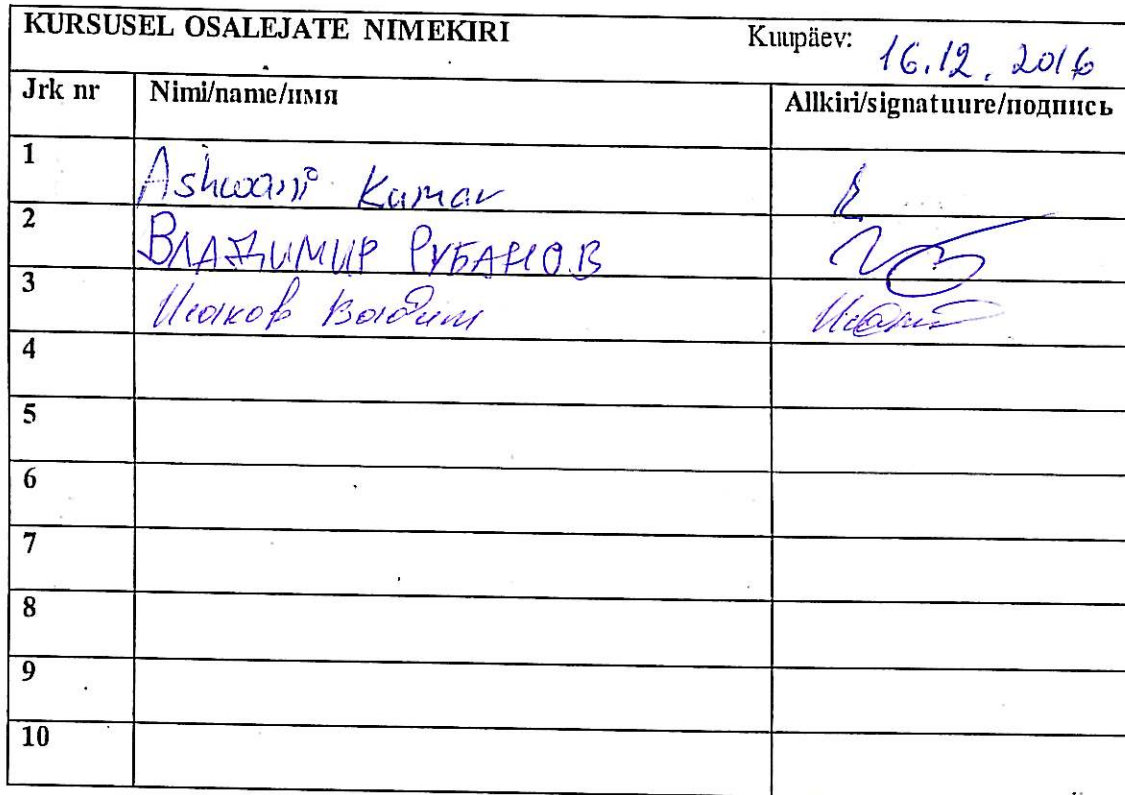 KURSUSEL OSALEJATE NIMEKIRI Kuupäev: 16.12.2016
Jrk nr Nimi/name/имя Allkiri/signatuure/подпись
1 Ashwani Kumar
2 ВЛАДИМИР РУБАНОВ
3 Исаков Вадим
4
5
6
7
8
9
10